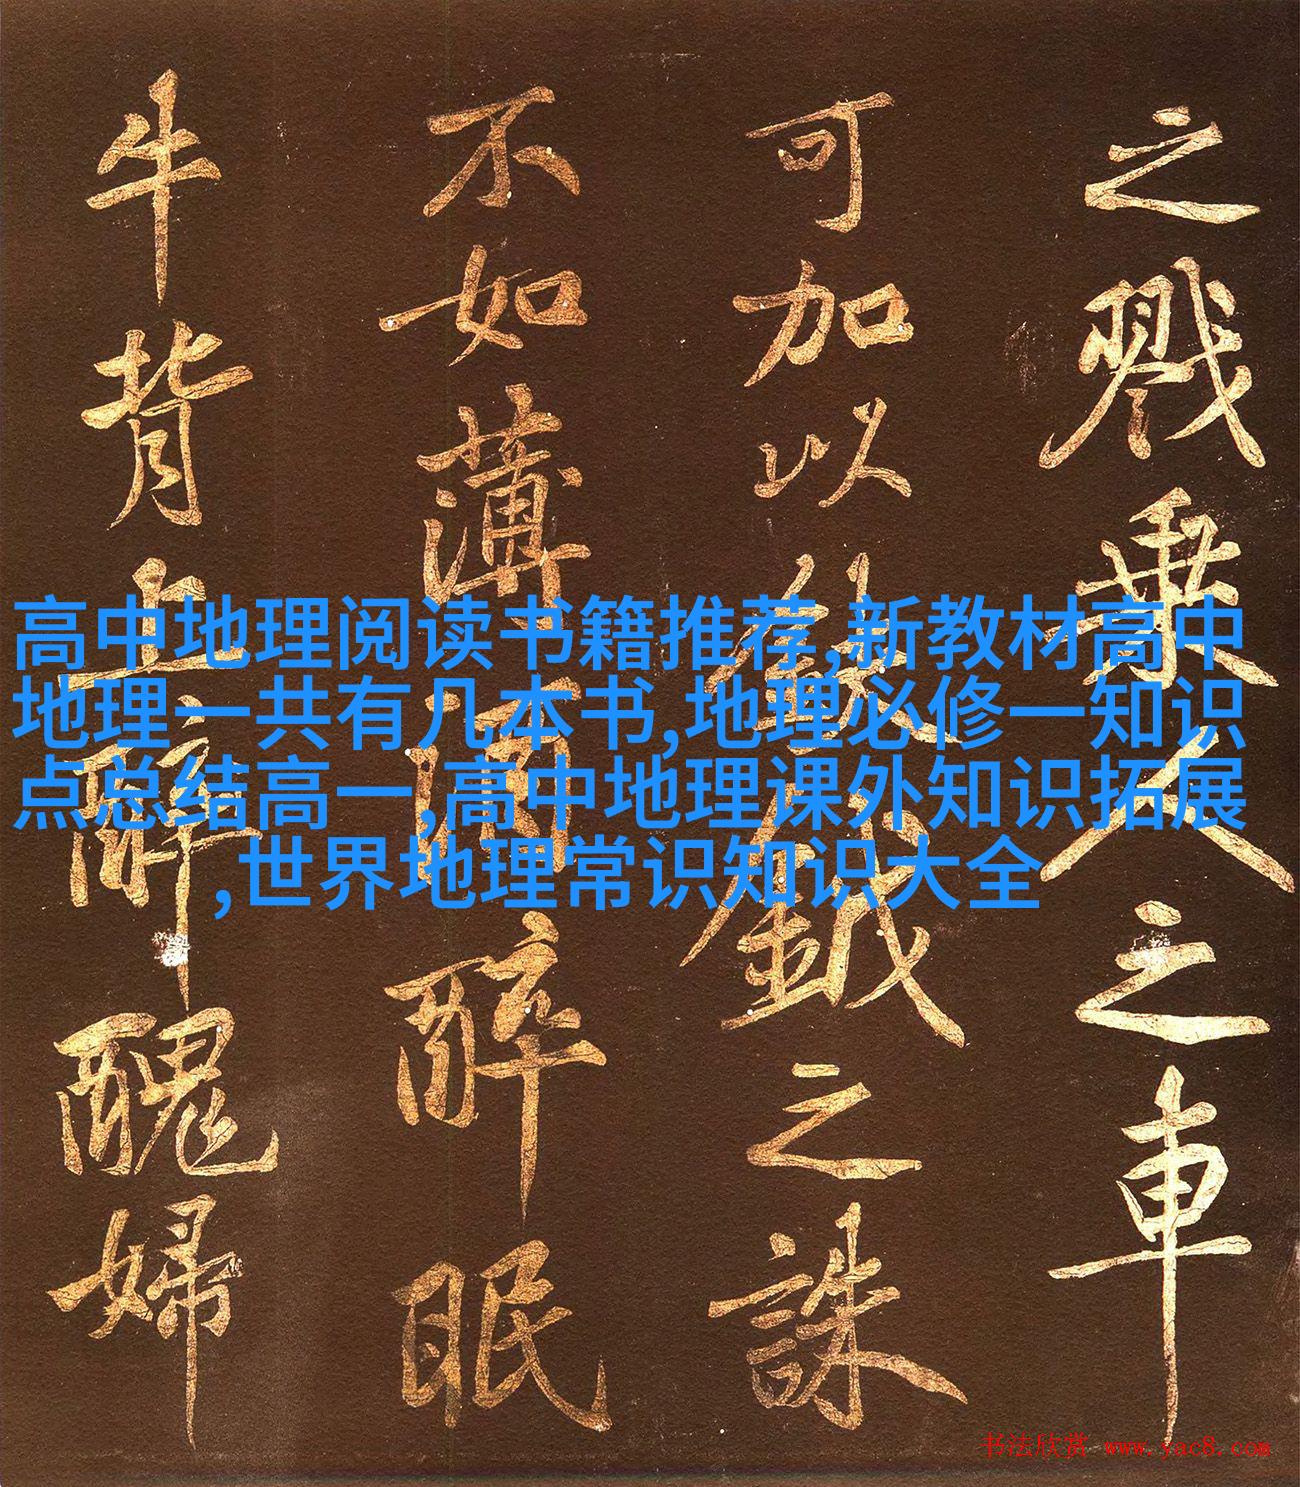 之戮乘人之車
可加以鈇鉞之誅
不如薄酒醉眠
牛背上醉醜婦
高中地理阅读书籍推荐,新教材高中
地理一共有几本书,地理必修一知识
点总结高一,高中地理课外知识拓展
,世界地理常识知识大全
书法欣赏 www.yac8.com